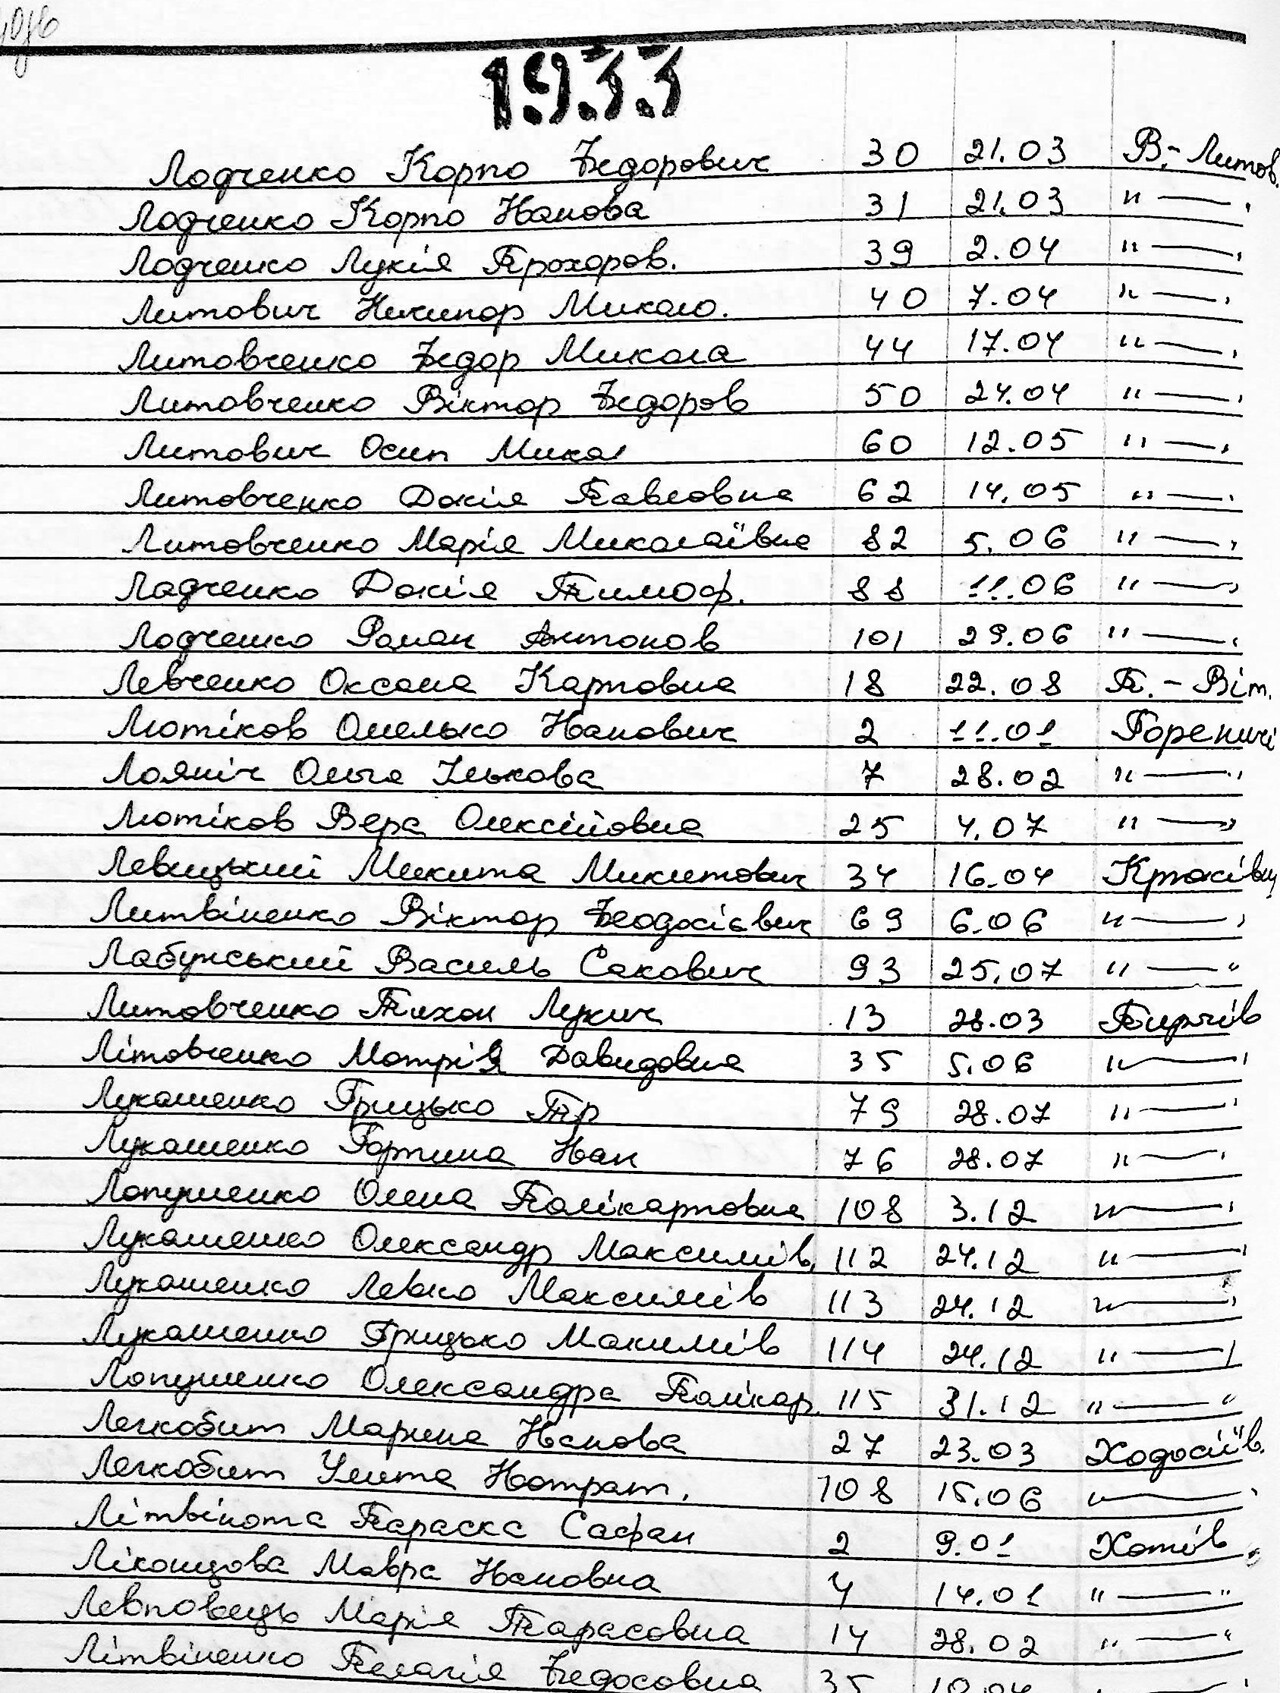 1933
Лодченко Корпо Федорович 30 21.03 В.-Литов.
Лодченко Корпо Іванова 31 21.03 " — "
Лодченко Лукія Прохоров. 39 2.04 " — "
Литович Никипор Микол. 40 7.04 " — "
Литовченко Федор Микола 44 17.04 " — "
Литовченко Віктор Федоров 50 24.04 " — "
Литович Осип Микол 60 12.05 " — "
Литовченко Докія Павловна 62 14.05 " — "
Литовченко Марія Миколаївна 82 5.06 " — "
Ладченко Докія Тимоф. 88 11.06 " — "
Лодченко Роман Антонов 101 29.06 " — "
Левченко Оксана Карповна 18 22.08 П.-Віт.
Лютіков Омелько Іванович 2 11.01 Гореничі
Лояніч Ольга Ількова 7 28.02 " — "
Лютіков Вера Олексійовна 25 4.07 " — "
Левицький Микита Микитович 34 16.04 Крюківщ
Литвіненко Віктор Феодосієвич 69 6.06 " — "
Лабунський Василь Сакович 93 25.07 " — "
Литовченко Тихон Лукич 13 28.03 Пирогів
Літовченко Мотрія Давидовна 35 5.06 " — "
Лукашенко Грицько Гр 79 28.07 " — "
Лукашенко Горпина Іван 76 28.07 " — "
Лопушенко Олена Полікарповна 108 3.12 " — "
Лукашенко Олександр Максимів. 112 24.12 " — "
Лукашенко Левко Максимів 113 24.12 " — "
Лукашенко Грицько Макимів 114 24.12 " — "
Лопушенко Олександра Полікар. 115 31.12 " — "
Легкобит Марина Іванова 27 23.03 Ходосіїв.
Легкобит Улита Кондрат. 108 15.06 " — "
Параска Сафон 2 9.01 Хотів
Мавра Івановна 4 14.01 " — "
Марія Тарасовна 14 28.02 " — "
Літвіненко Пелагія Федосовна 35 10.04